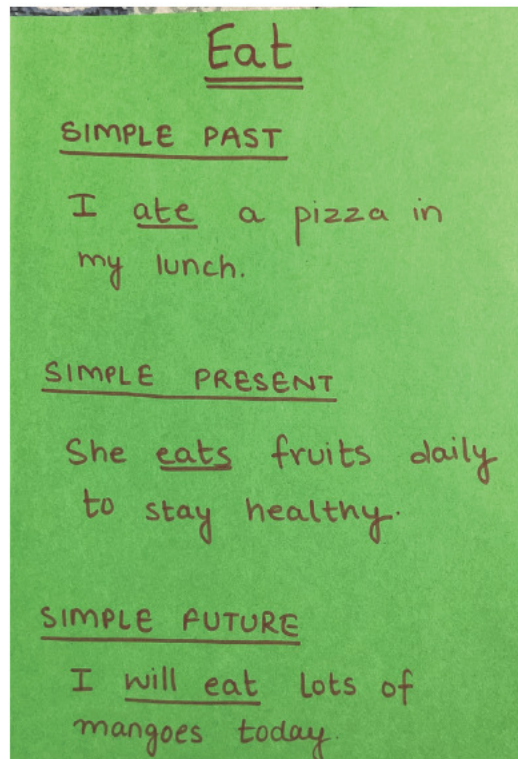 Eat
SIMPLE PAST
I ate a pizza in
my lunch.
SIMPLE PRESENT
She eats fruits daily
to stay healthy.
SIMPLE FUTURE
I will eat lots of
mangoes today.